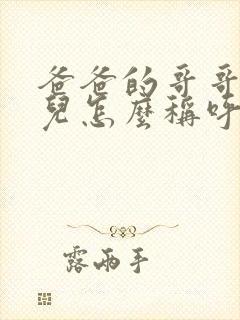 爸爸的哥哥
兒怎麼稱呼
露兩手